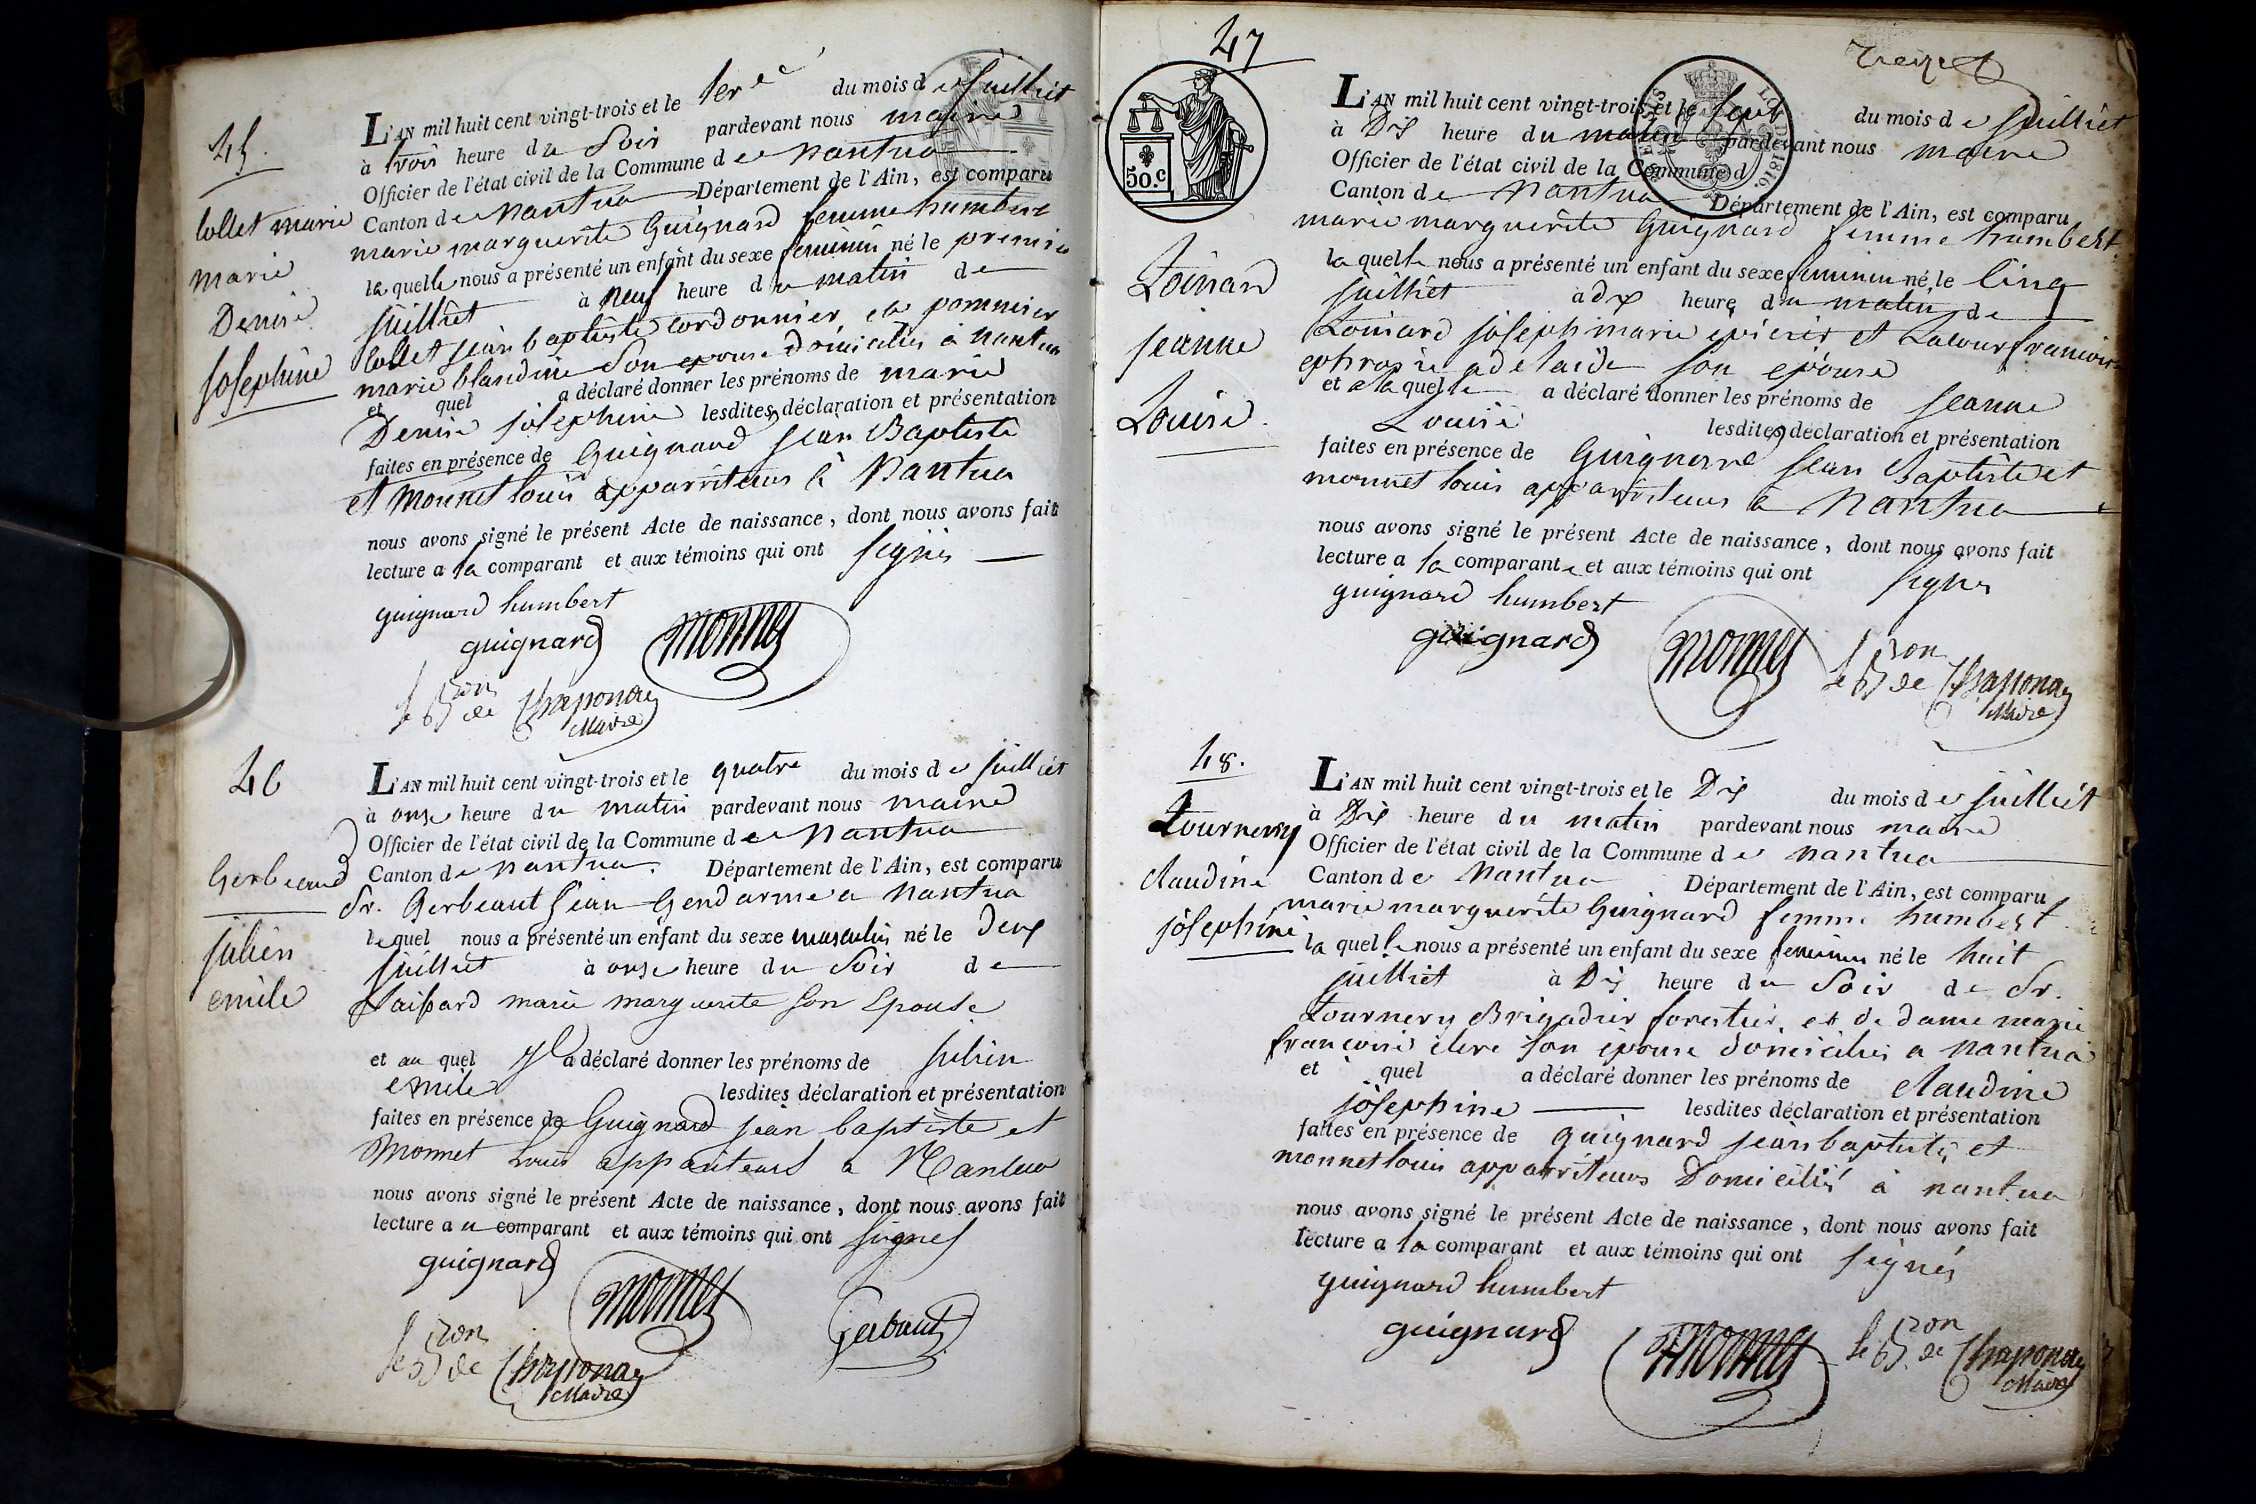 45.
Collet marie
marie
Denise
josephine
L'AN mil huit cent vingt-trois et le 1er du mois de juilliet
à trois heure du Soir pardevant nous maire
Officier de l'état civil de la Commune de nantua
Canton de nantua Département de l'Ain, est comparu
marie marguerite Guignard femme humbert
la quelle nous a présenté un enfant du sexe feminin né le premier
juilliet à neuf heure du matin de
Collet jean baptiste cordonnier et pommier
marie blandine Son epouse domiciliés à nantua
et quel a déclaré donner les prénoms de marie
Denise josephine lesdites déclaration et présentation
faites en présence de Guignard jean Baptiste
et Monnet louis apparriteurs à Nantua
nous avons signé le présent Acte de naissance, dont nous avons fait
lecture a la comparant et aux témoins qui ont signés
guignard humbert
guignard monnet
le Bron de Chaponay
Maire
46
Gerbeaud
julien
emile
L'AN mil huit cent vingt-trois et le quatre du mois de juilliet
à onze heure du matin pardevant nous maire
Officier de l'état civil de la Commune de nantua
Canton de nantua. Département de l'Ain, est comparu
Sr. Gerbeaut Jean Gendarme a nantua
lequel nous a présenté un enfant du sexe masculin né le deux
juilliet à onze heure du Soir de
marie marguerite Son Epouse
et au quel Il a déclaré donner les prénoms de julien
emile lesdites déclaration et présentation
faites en présence de Guignard jean baptiste et
Monnet Louis appariteurs a Nantua
nous avons signé le présent Acte de naissance, dont nous avons fait
lecture a u comparant et aux témoins qui ont signés
guignard
monnet Gerbaut
le Bron de Chaponay
Maire
47
Treize
50.c
1816
Loinard
jeanne
Louise.
L'AN mil huit cent vingt-trois et le sept du mois de juilliet
à Dix heure du matin pardevant nous maire
Officier de l'état civil de la Commune d
Canton de nantua Département de l'Ain, est comparu
marie marguerite Guignard femme humbert
la quelle nous a présenté un enfant du sexe feminin né le Cinq
juilliet à dix heure du matin de
Loinard joseph marie epicier et Lacour francoise
ephrosine adelaide Son epouse
et a la quelle a déclaré donner les prénoms de jeanne
Louise lesdites déclaration et présentation
faites en présence de Guignard jean Baptiste et
monnet louis apparriteurs à Nantua
nous avons signé le présent Acte de naissance, dont nous avons fait
lecture a la comparante et aux témoins qui ont signés
guignard humbert
guignard monnet le Bron de Chaponay
Maire
48.
Tournery
claudine
josephine
L'AN mil huit cent vingt-trois et le Dix du mois de juilliet
à Dix heure du matin pardevant nous maire
Officier de l'état civil de la Commune de nantua
Canton de Nantua Département de l'Ain, est comparu
marie marguerite Guignard femme humbert
la quelle nous a présenté un enfant du sexe feminin né le huit
juilliet à Dix heure du Soir de Sr.
Tournery Brigadier forestier, et de dame marie
francoise Son epouse domiciliés a nantua
et quel a déclaré donner les prénoms de claudine
josephine lesdites déclaration et présentation
faites en présence de guignard jean baptiste et
monnet louis apparriteurs Domiciliés à nantua
nous avons signé le présent Acte de naissance, dont nous avons fait
lecture a la comparant et aux témoins qui ont signés
guignard humbert
guignard monnet le Bron de Chaponay
Maire